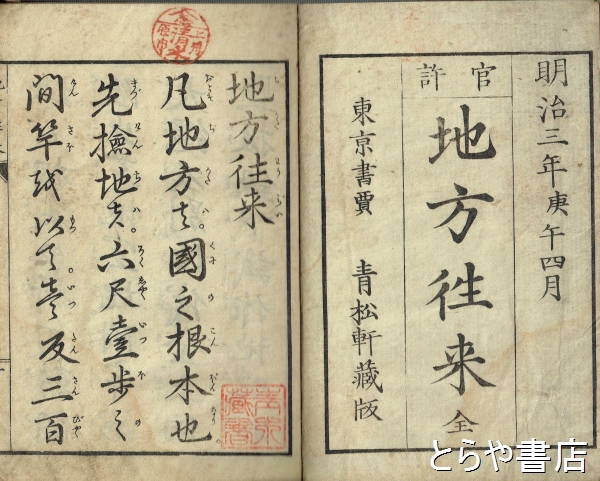 明治三年庚午四月
官許
地方往来 全
東京書賈 青松軒藏版
地方往来
凡地方者國之根本也
先撿地者六尺壹歩之
間竿越以天壹反三百
とらや書店